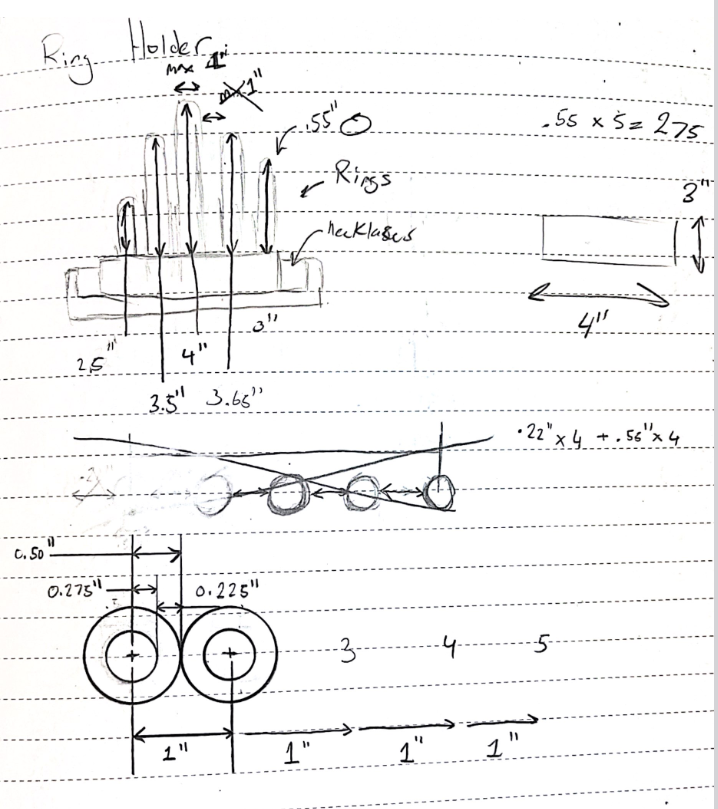 Ring Holder
max 1"
1"
.55"
.55 x 5 = 275
Rings
3"
necklases
4"
2.5"
4"
3"
3.5"
3.65"
.22" x 4 + .55" x 4
0.50"
0.275"
0.225"
3 4 5
1" 1" 1" 1"